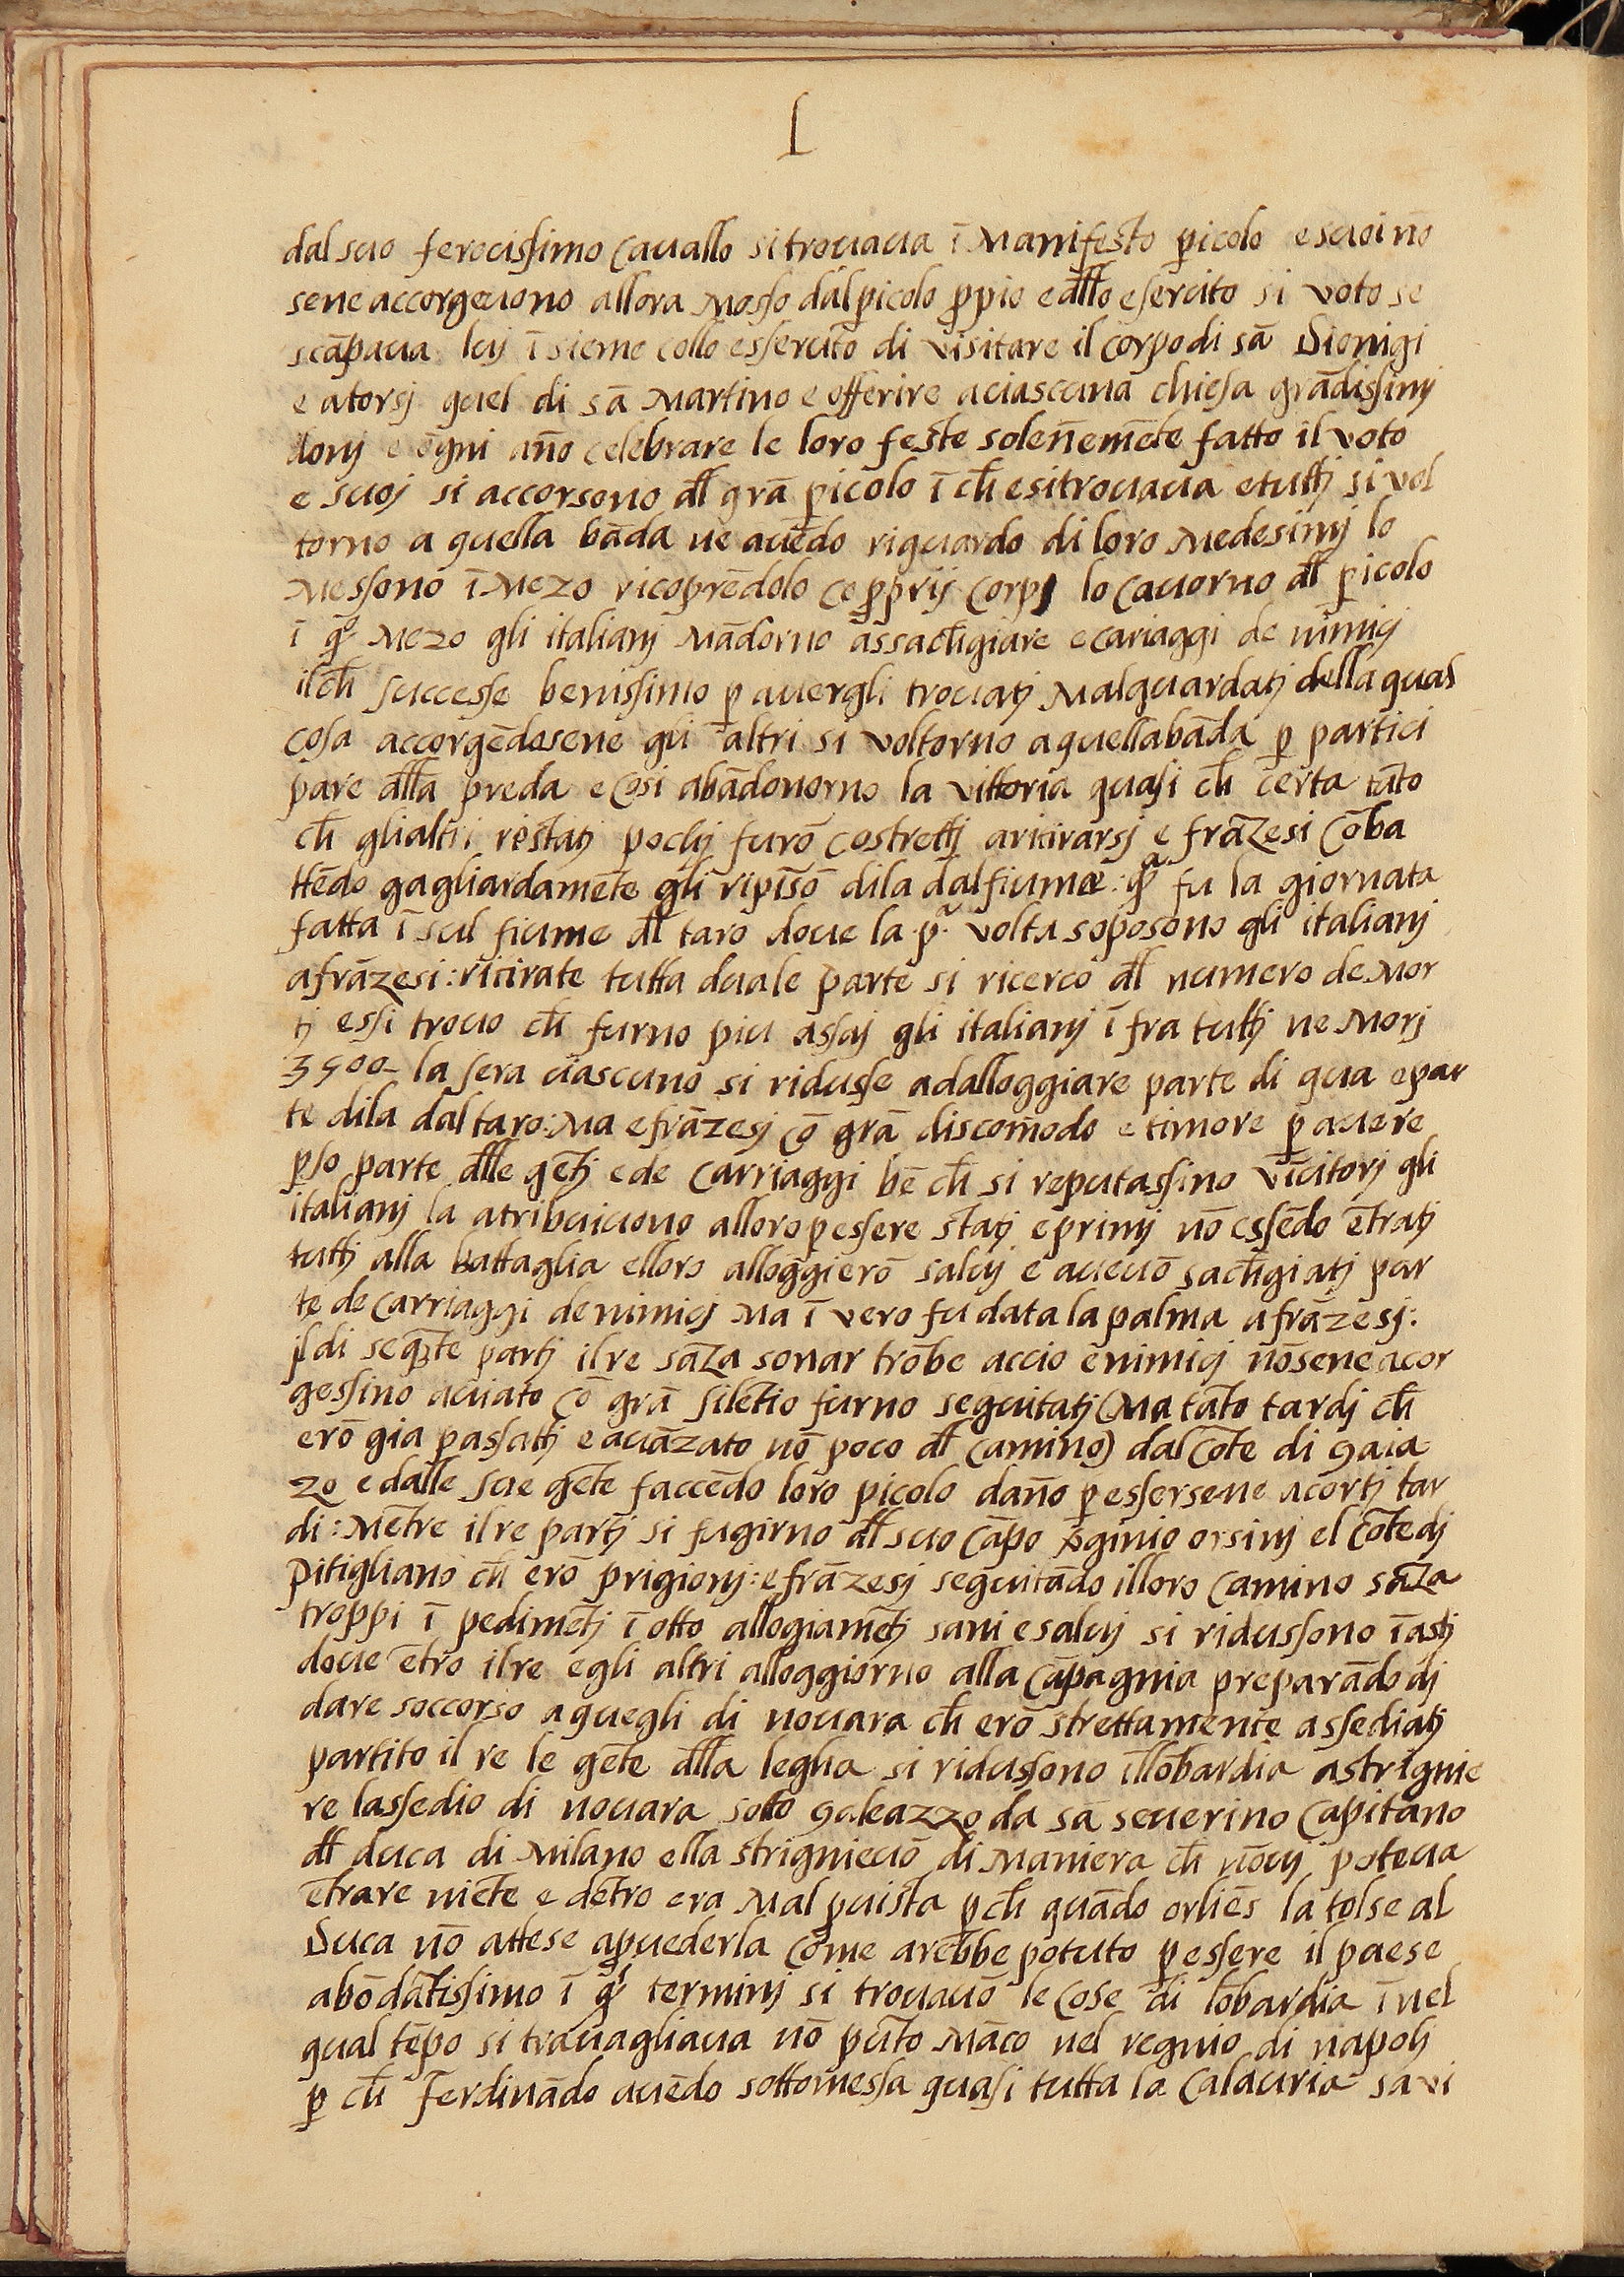 L
dal suo ferocissimo cauallo si trouaua ī Manifesto ꝑicolo e suoi nō
sene accorgeuono allora Mosso dal ꝑicolo ꝓpio e dłło esercito si voto se
scāpaua luj īsieme collo essercito di visitare il corpo di sā Dionigi
e atorsj quel di sā Martino e offerire aciascuna chiesa grādissimj
donj e ogni año celebrare le loro feste soleñemēte fatto il voto
e suoj si accorsono dł grā ꝑicolo ī cħ esitrouaua etuttj si vol
torno a quella bāda ne auēdo riguardo di loro Medesimj lo
Messono ī Mezo ricoprēdolo co ꝓprij corpj lo cauorno dł ꝑicolo
ī qͦ Mezo gli italianj Mādorno assacħgiare e cariaggi de nimicj
ilcħ successe benissimo ꝑ auergli trouatj Malguardatj della qual
cosa accorgēdosene gli altri si voltorno aquellabāda ꝑ partici
pare dłła preda e cosi abādonorno la vittoria quasi cħ certa tāto
cħ glialtri restatj pochj furō costrettj aritirarsj e frāzesi cōba
ttēdo gagliardamēte gli ripīsō dila dalfiume: qᵃ fu la giornata
fatta ī sul fiume dł taro doue la .pᵃ. volta soposono gli italianj
afrāzesi: ritirate tutta duale parte si ricerco dł numero de Mor
tj essi trouo cħ furno piu assaj gli italianj ī fra tuttj ne Morj
3500- la sera ciascuno si ridusse adalloggiare parte di qua epar
te dila dal taro: Ma efrāzesj cō grā discom̄odo e timore ꝑ auere
ꝑso parte dłłe gētj ede carriaggi bē cħ si reputassino vīcitorj gli
italianj la atribuiuono alloro ꝑessere statj eprimj nō essēdo ētratj
tuttj alla battaglia elloro alloggierō saluj e aueuō sacħgiatj par
te de carriaggi de nimicj Ma ī vero fu data la palma afrāzesj:
il di seqꝫte partj il re sāza sonar trōbe accio enimicj nōsene acor
gessino auiato cō grā silētio furno seguitatj (Ma tāto tardj cħ
erō gia passattj e auāzato nō poco dł camino) dal cōte di gaia
zo e dalle sue gēte faccēdo loro picolo daño ꝑ essersene acortj tar
di: Mētre il re partj si fugirno dł suo cāpo v̄ginio orsinj el cōte dj
pitigliano cħ erō prigionj: efrāzesj seguitādo illoro camino sāza
troppi ī pedimētj ī otto allogiamētj sani e saluj si ridussono ī astj
doue ētro il re egli altri alloggiorno alla cāpagnia preparādo dj
dare soccorso aquegli di nouara cħ erō strettamente assediatj
partito il re le gēte dłła legha si ridussono īllōbardia astrignie
re lassedio di nouara sotto galeazzo da sā seuerino capitano
dł duca di Milano ella strignieuō di Maniera cħ nōuj poteua
ētrare niēte e dētro era Mal ꝓuista ꝑcħ quādo orliēs la tolse al
Duca nō attese aꝓuederla come arebbe potuto ꝑ essere il paese
abōdātissimo ī qⁱ terminj si trouauō le cose di lōbardia ī nel
qual tēpo si trauagliaua nō pūto Māco nel regnio di napolj
ꝑ cħ Ferdinādo auēdo sottomessa quasi tutta la calauria sa vi